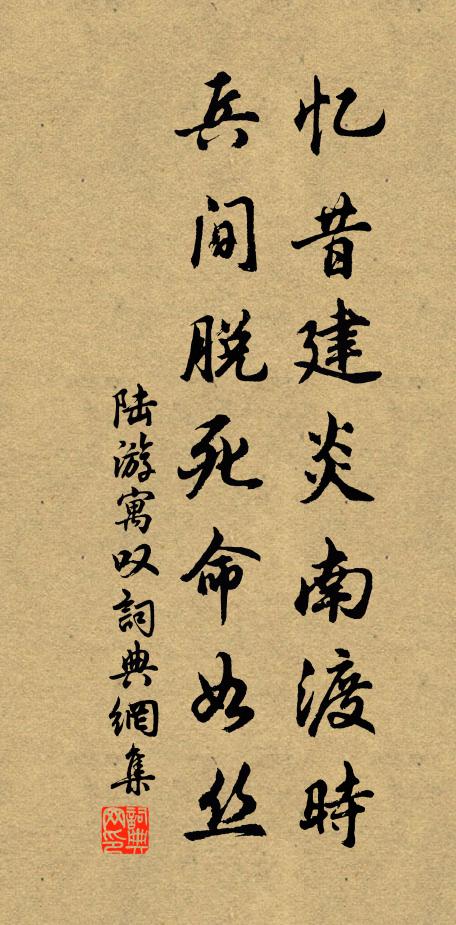 忆昔建炎南渡時
兵间脱死命如丝
陆游寓叹詞典網集
詞典網印